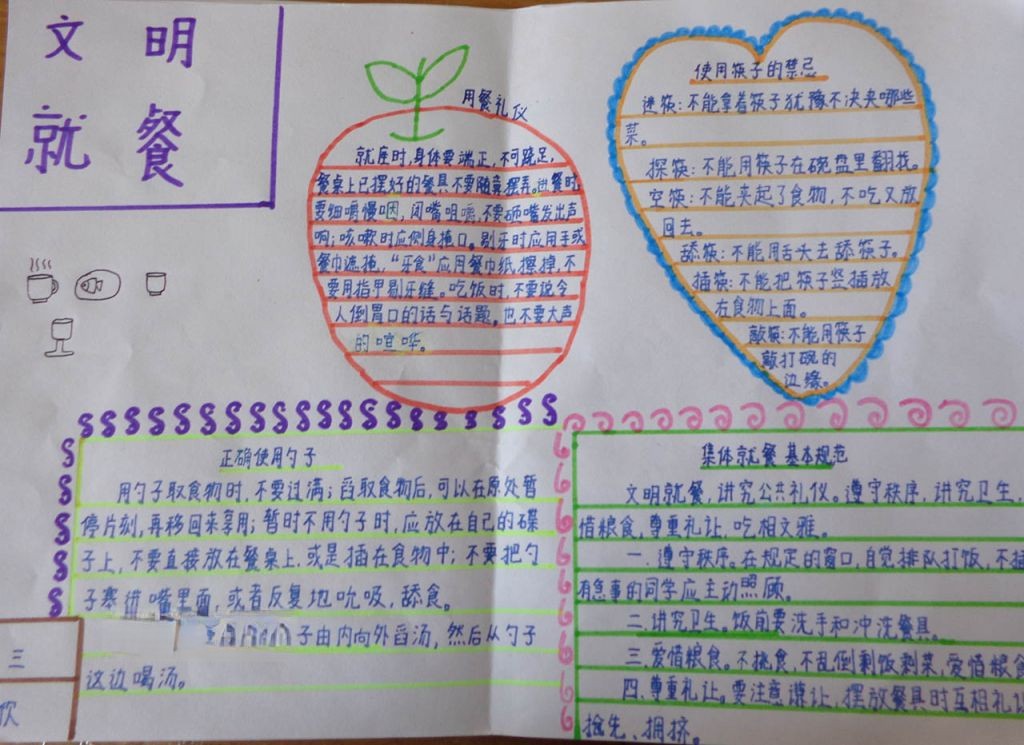 文明
就餐
用餐礼仪
就座时,身体要端正,不可跷足,
餐桌上已摆好的餐具不要随意摆弄。进餐时
要细嚼慢咽,闭嘴咀嚼,不要砸嘴发出声
啊;咳嗽时应侧身掩口。剔牙时应用手或
餐巾遮掩,“牙食”应用餐巾纸擦掉,不
要用指甲剔牙缝。吃饭时,不要说令
人倒胃口的话与话题。也不要大声
的喧哗。
使用筷子的禁忌
迷筷:不能拿着筷子犹豫不决夹哪些
菜。
探筷:不能用筷子在碗盘里翻找。
空筷:不能夹起了食物,不吃又放
回去。
舔筷:不能用舌头去舔筷子。
插筷:不能把筷子竖插放
在食物上面。
敲筷:不能用筷子
敲打碗的
边缘。
正确使用勺子
用勺子取食物时,不要过满;舀取食物后,可以在原处暂
停片刻,再移回来享用;暂时不用勺子时,应放在自己的碟
子上,不要直接放在餐桌上,或是插在食物中;不要把勺
子塞进嘴里面,或者反复地吮吸,舔食。
子由内向外舀汤,然后从勺子
这边喝汤。
三
集体就餐基本规范
文明就餐,讲究公共礼仪。遵守秩序,讲究卫生,
惜粮食,尊重礼让,吃相文雅。
一.遵守秩序。在规定的窗口,自觉排队打饭,不插
有急事的同学应主动照顾。
二.讲究卫生。饭前要洗手和冲洗餐具。
三.爱惜粮食。不挑食,不乱倒剩饭剩菜,爱惜粮食
四.尊重礼让。要注意谦让,摆放餐具时互相礼让
抢先、拥挤。